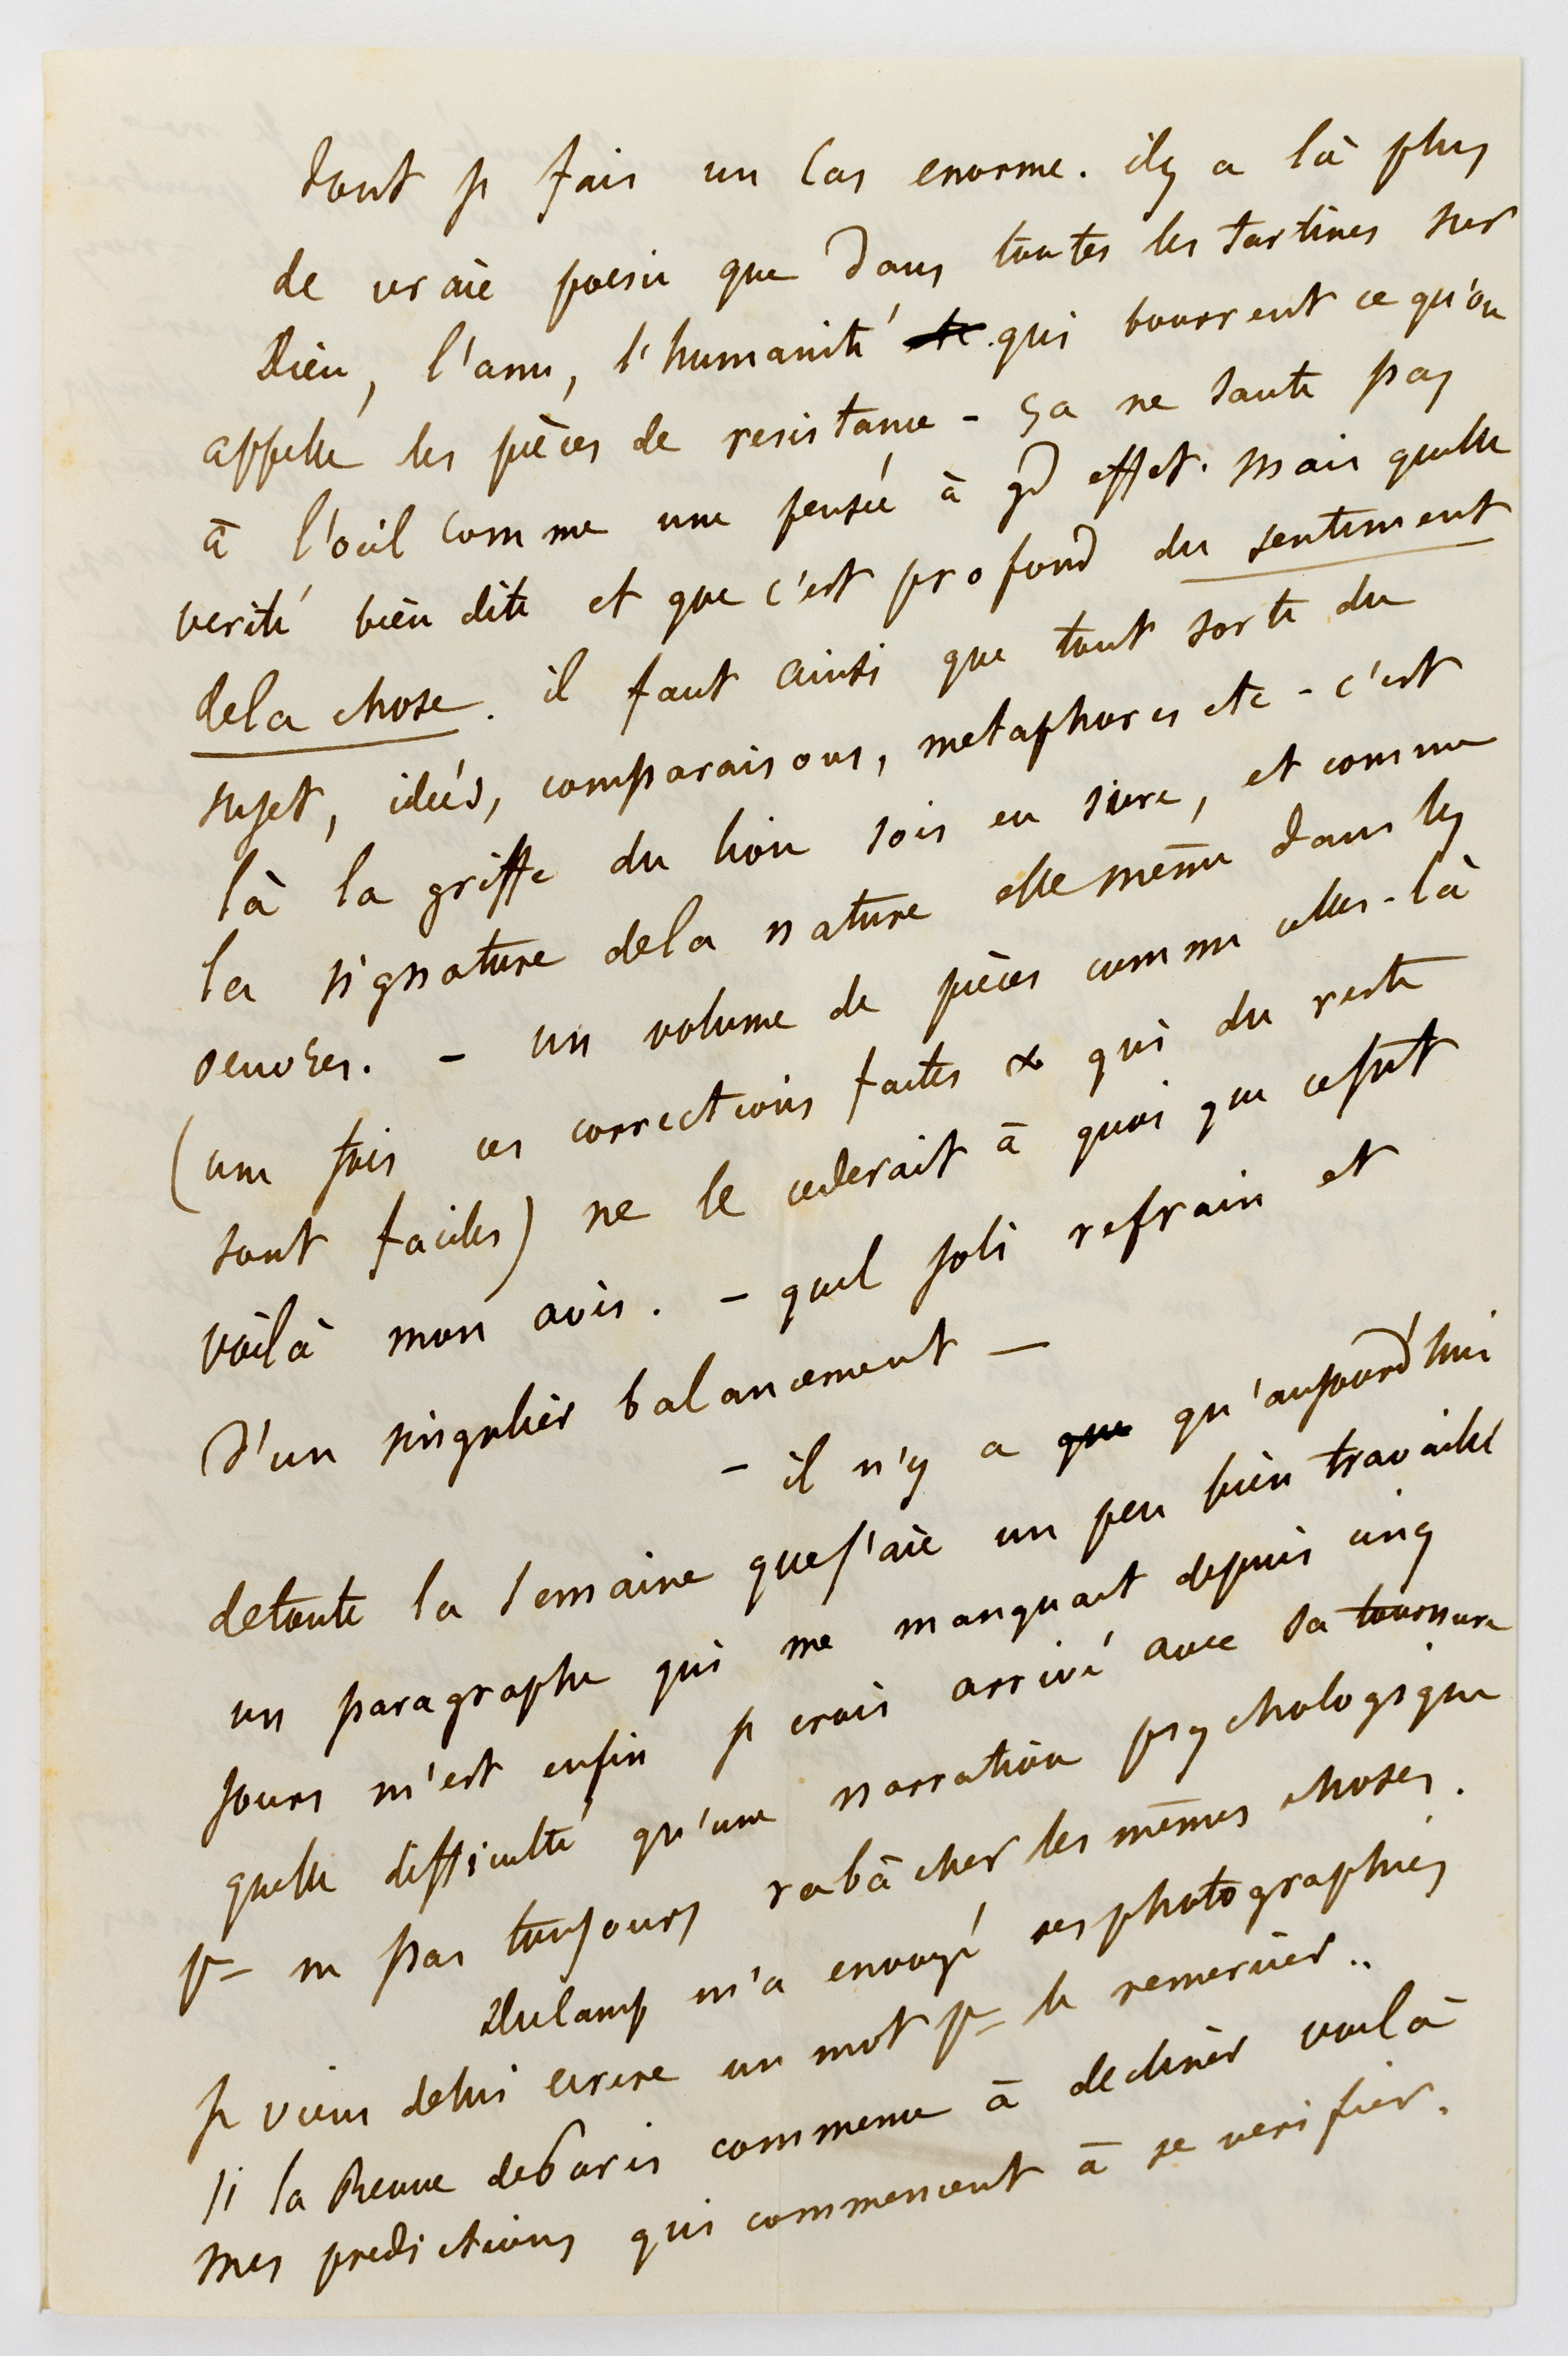 dont je fais un cas enorme. il y a là plus
de vraie poesie que dans toutes les tartines sur
Dieu, l'ame, l'humanité qui bourrent ce qu'on
appelle les pièces de resistance - ça ne saute pas
à l'oeil comme une pensée à gd effet. mais quelle
verité bien dite et que c'est profond du sentiment
de la chose. il faut ainsi que tout sorte du
sujet, ideés, comparaisons, metaphores etc - c'est
là la griffe du lion sois en sure, et comme
la signature de la nature elle même dans les
oeuvres. - un volume de pièces comme celles-là
(une fois ces corrections faites & qui du reste
sont faciles) ne le cederait à quoi que ce fut
voilà mon avis. - quel joli refrain et
d'un singulier balancement -
- il n'y a que qu'aujourd'hui
de toute la semaine que j'aie un peu bien travaillé
un paragraphe qui me manquait depuis cinq
jours m'est enfin je crois arrivé avec sa tournure
quelle difficulté qu'une narration psychologique
pr ne pas toujours rabâcher les mêmes choses.
Delamp m'a envoyé ses photographies
je viens de lui ecrire un mot pr le remercier..
si la Revue de Paris commence à decliner voilà
mes predictions qui commencent à se verifier.